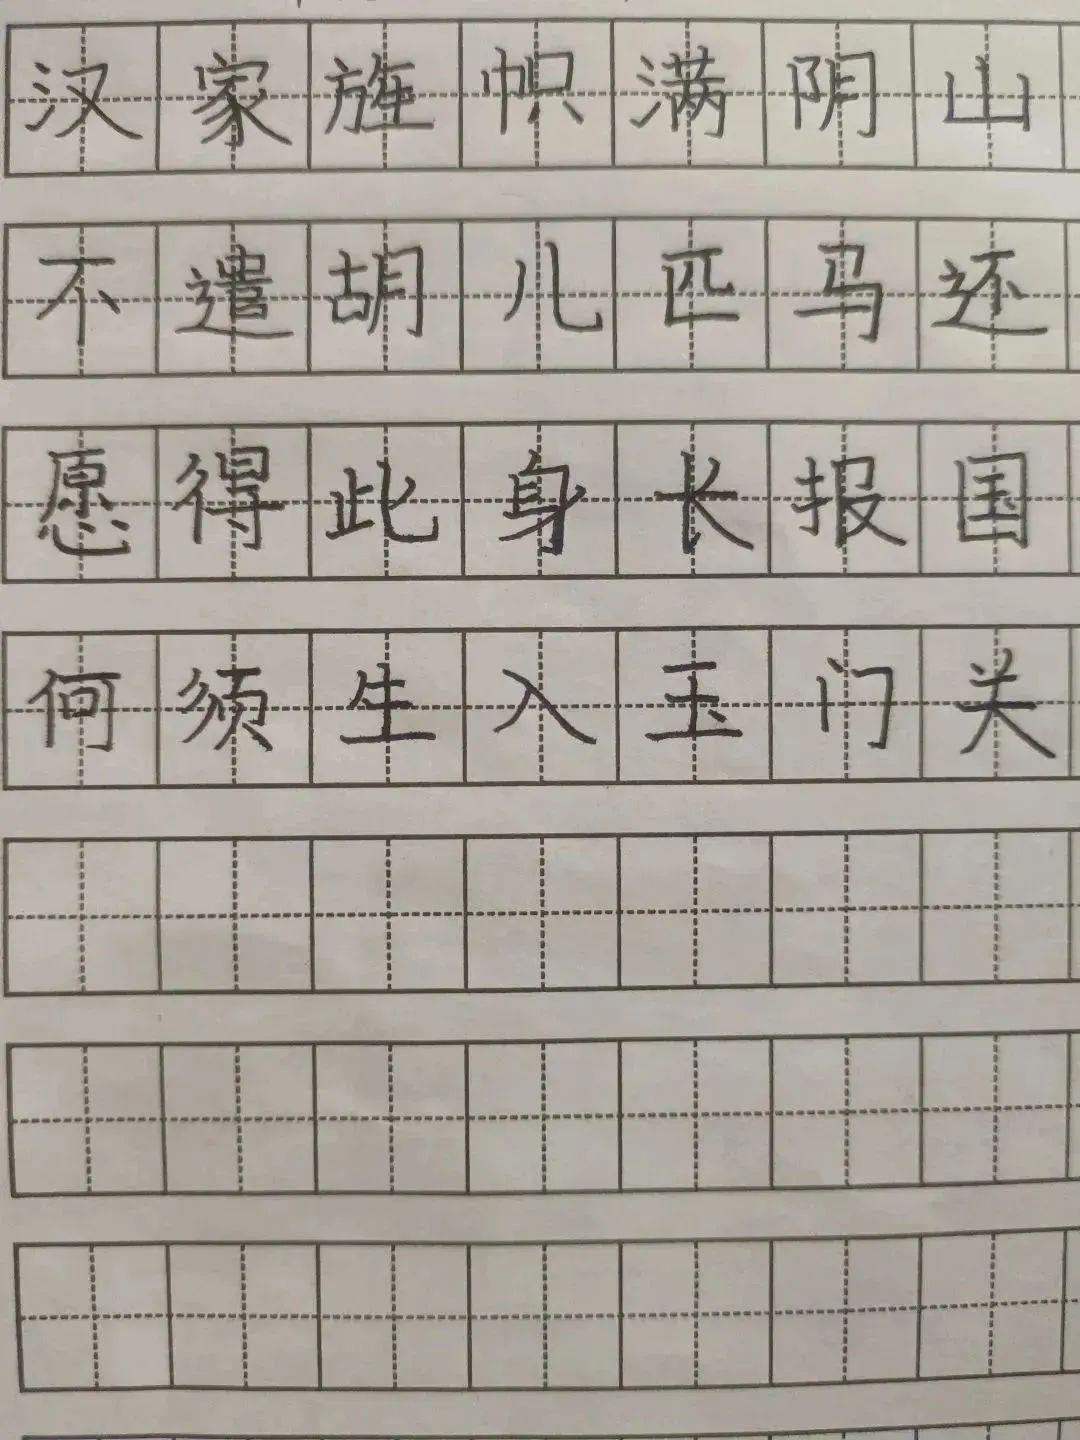 汉家旌帜满阴山
不遣胡儿匹马还
愿得此身长报国
何须生入玉门关